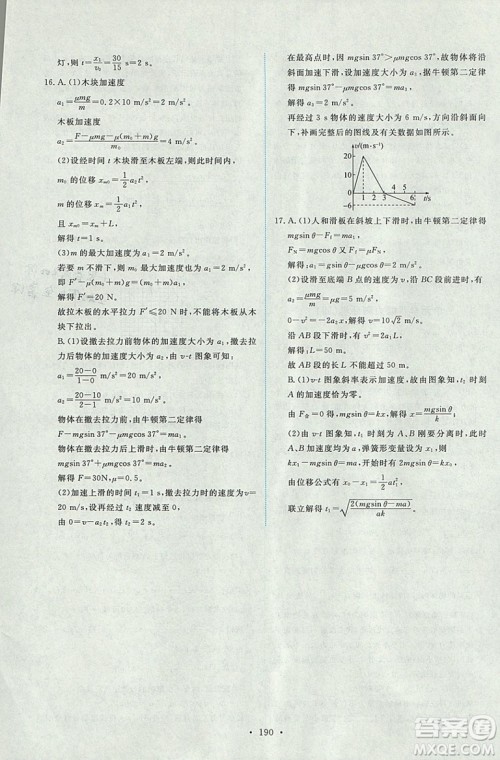 灯,则 t=x₁/v₀=30/15 s=2 s。
16. A. (1)木块加速度
a₁=μmg/m=0.2×10 m/s²=2 m/s²
木板加速度
a₂=F-μmg-μ(m₀+m)g/m₀=4 m/s²。
(2)设经时间 t 木块滑至木板左端,则
m₀ 的位移 xₘ₀=1/2a₂t²
m 的位移 xₘ=1/2a₁t²,
且 xₘ₀-xₘ=L
解得 t=1 s。
(3)m 的最大加速度为 a₁=2 m/s²
若要 m 不下滑,则 m₀ 的加速度最大为 2 m/s²,
即 F′-μ(m₀+m)g=(m₀+m)a₁
解得 F′=20 N。
故拉木板的水平拉力 F′≤20 N 时,不会将木
块下拉出。
B. (1)设撤去拉力前物体的加速度大小为 a₁,撤去
拉力后物体的加速度大小为 a₂,由 v-t 图象可知
a₁=20-0/1-0 m/s²=20 m/s²
a₂=20-10/2-1 m/s²=10 m/s²
物体在撤去拉力前,由牛顿第二定律得
F-mgsin 37°-μmgcos 37°=ma₁。
物体在撤去拉力后上滑时,由牛顿第二定律得
mgsin 37°+μmgcos 37°=ma₂
解得 F=30N,μ=0.5。
(2)设加速上滑的时间 t₁=1 s,撤去拉力时的速度为 v=
20 m/s,设再经过 t₂ 速度变为 0,
由 0=v-a₂t₂,得 t₂=2 s。
在最高点时,mgsin 37°>μmgcos 37°,故物体将沿
斜面加速下滑,设加速度大小为 a₃,据牛顿第二定
律得 mgsin 37°-μmgcos 37°=ma₃
解得 a₃=2 m/s²。
再经过 3 s 物体的速度大小为 6 m/s,方向沿斜面
向下,补画完整后的图线及有关数据如图所示。
v/(m·s⁻¹)
20
10
0
-6
1 2 3 4 5 6 t/s
17. A. (1)人和滑板在斜坡上下滑时,由牛顿第二定律得
mgsin θ-Fμ=ma₁
Fɴ=mgcos θ,Fμ=μFɴ
解得 a₁=2 m/s²。
(2)设滑至底端 B 点的速度为 v,沿 BC 段前进时,
a₂=μmg/m=5 m/s²
0-v²=-2a₂x,解得 v=10√2 m/s。
沿 AB 段下滑时,v²-0=2a₁L
解得:L=50 m。
故 AB 段最长不能超过 50 m。
B. (1)v-t 图象斜率表示加速度,故由图象知,t₂ 时刻
A 的加速度为零,则
kx=mgsin θ,解得 x=mgsin θ/k。
(2)由 v-t 图象知,t₁ 时刻 A、B 刚要分离时,
加速度均为 a,弹簧形变量为 x₁,则
kx₁-mgsin θ=ma,开始时有 kx₀=2mgsin θ,
由位移公式有 x₀-x₁=1/2at₁²,
联立解得 t₁=√(2(mgsin θ-ma)/ak)
·190·
作业精灵
MKWK.COM